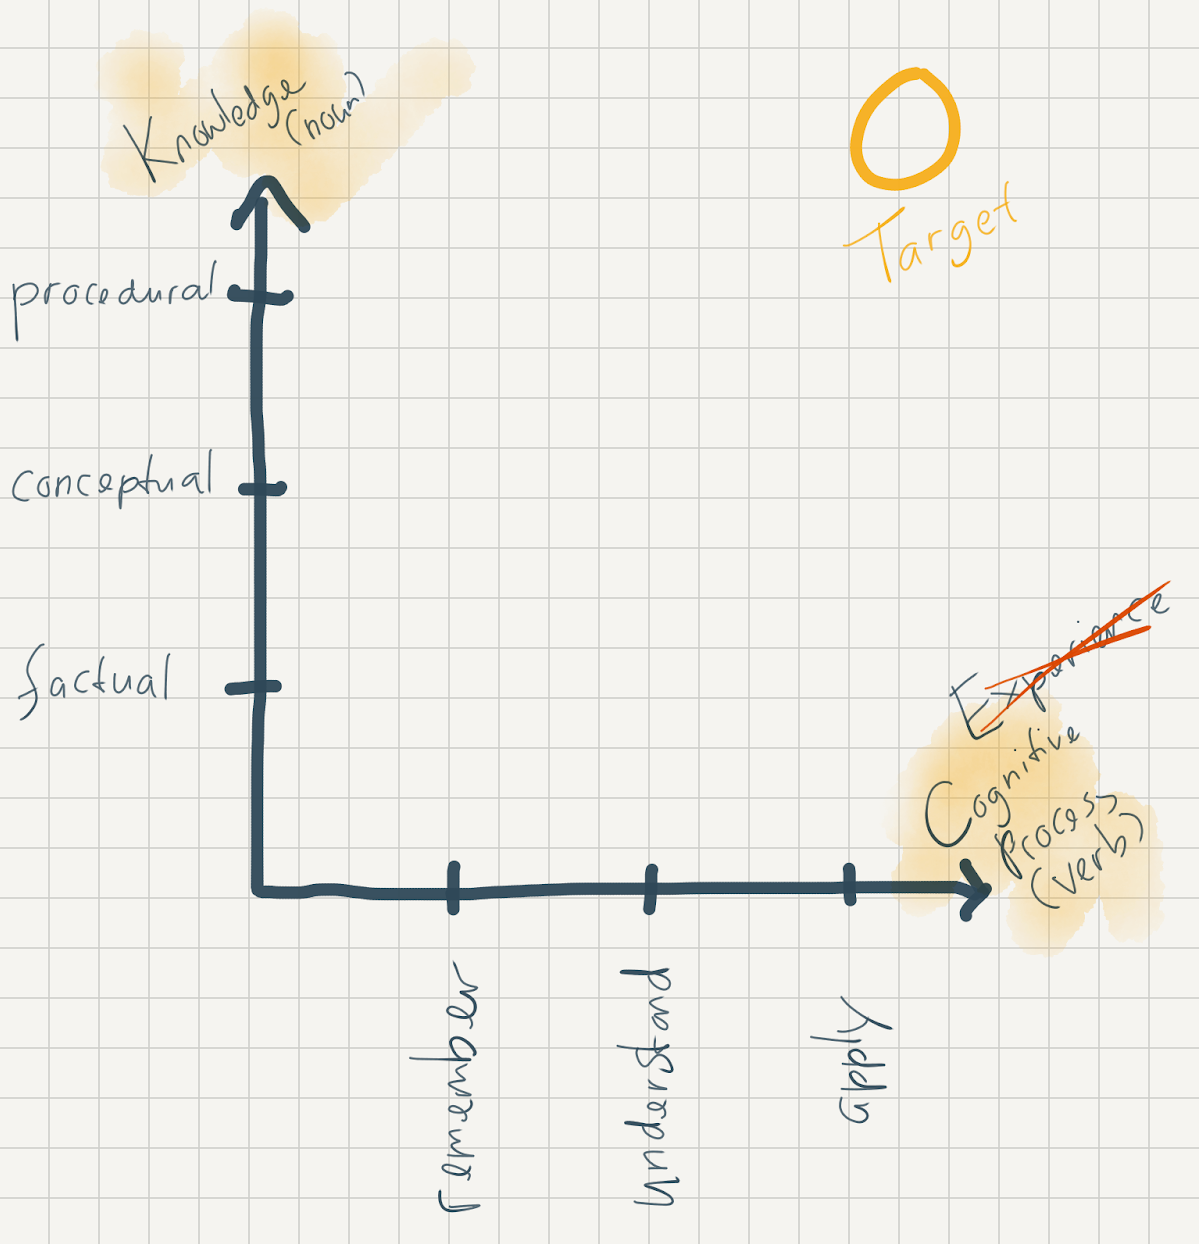 Knowledge
(noun)
Target
procedural
conceptual
factual
Experience
Cognitive
process
(verb)
remember
understand
apply